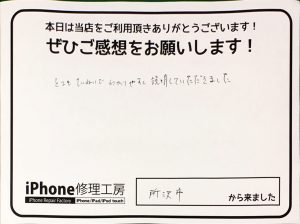 本日は当店をご利用頂きありがとうございます！
ぜひご感想をお願いします！
とても ていねいで わかりやすく 説明していただきました
iPhone修理工房
iPhone Repair Factory iPhone/iPad/iPod touch
所沢市
から来ました